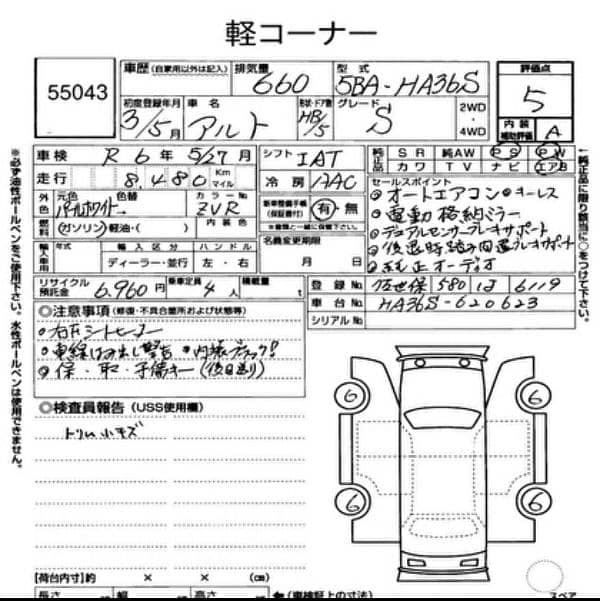 軽コーナー
55043
車歴 (自家用以外は記入) 排気量 660 型式 5BA-HA36S 評価点 5
初度登録年月 3/5月 車名 アルト 形状・ドア数 HB/5 グレード S 2WD・4WD 内装補助評価 A
車検 R 6年 5/27月 シフト IAT 純正品 SR 純AW PS PW
走行 8,480 Km マイル 冷房 AAC カワ TV ナビ エアB
外装 元色 パールホワイト 色替 カラーNo. ZVR 新車整備手帳(保証書付) 有・無
※書類と一緒に保管下さい
セールスポイント
・オートエアコン ・キーレス
・電動格納ミラー
・デュアルセンサーブレーキサポート
・後退時踏み間違ブレーキサポート
・純正オーディオ
燃料 ガソリン・軽油・( ) 内装色
輸入車用 年式 輸入区分 ハンドル 名義変更期限
ディーラー・並行 左・右 月 日
リサイクル預託金 6,960円 乗車定員 4人 積載量 t 登録No. 佐世保 580 6119
車台No. HA36S-620623
シリアルNo.
◎注意事項 (修復・不具合箇所および状態等)
・右左シートヒーター
・車線はみ出し警告 ・内張ブラック!
・保・取・予備キー(後日送り)
◎検査員報告 (USS使用欄)
トリム小キズ
6 6
6 6
【荷台内寸】約 × × (cm)
長さ 幅 高さ (車検証上の寸法) スペア
※必ず油性ボールペンをご使用下さい。水性ボールペンは使用できません。
純正品に限り該当に○をつけて下さい。